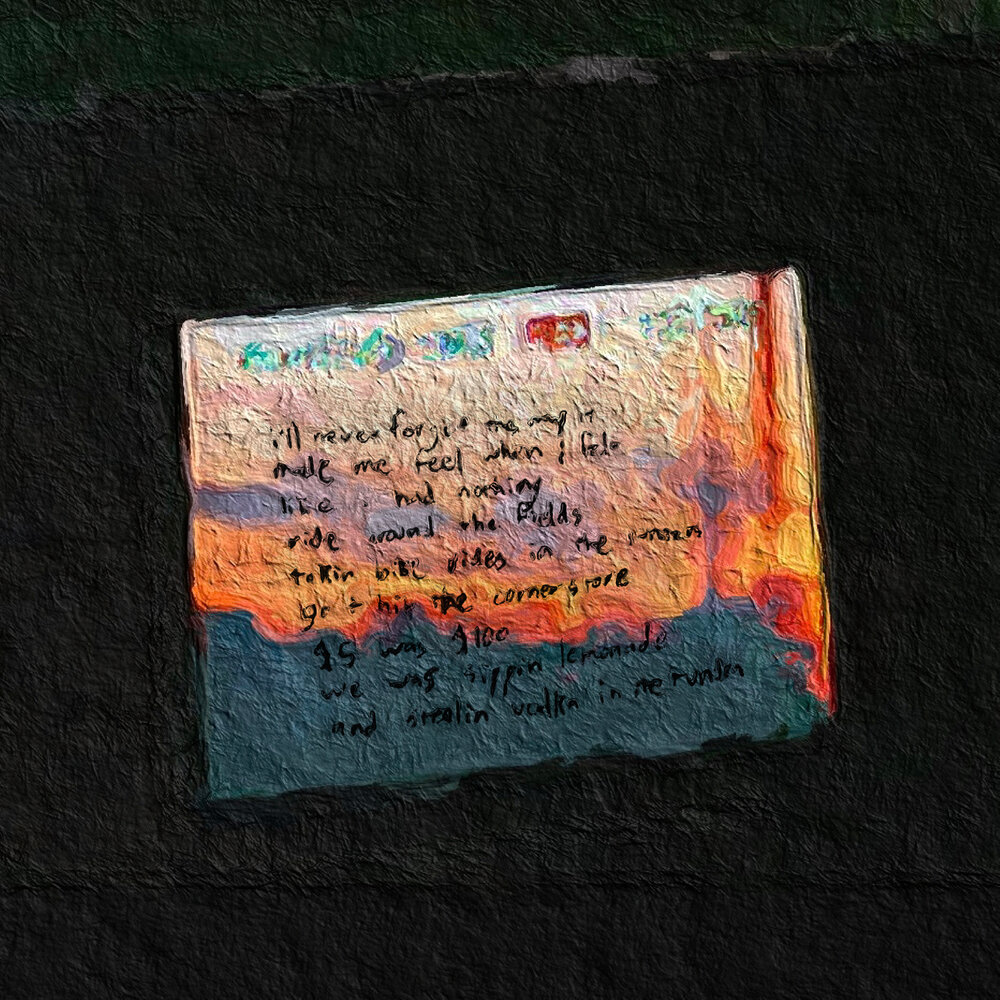 i'll never forget the way it
made me feel when i felt
like i had nothing
ride around the fields
takin bike rides in the
go + hit the corner store
$5 was $100
we was sippin lemonade
and stealin vodka in the